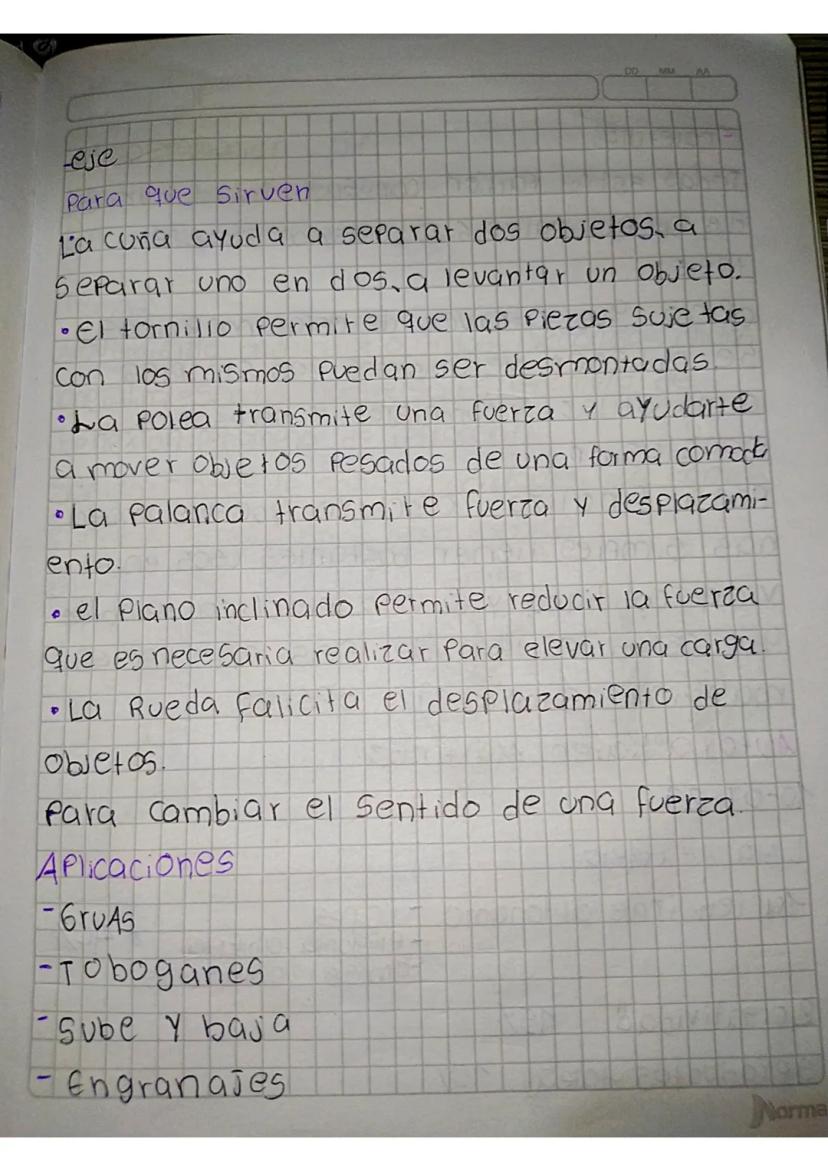 DD MM AA
-eje
Para que sirven
La cuña ayuda a separar dos objetos, a
separar uno en dos, a levantar un objeto.
• el tornillo permite que las piezas sujetas
con los mismos puedan ser desmontadas
• La polea transmite una fuerza y ayudarte
a mover objetos pesados de una forma comoda
• La palanca transmite fuerza y desplazami-
ento.
• el plano inclinado permite reducir la fuerza
que es necesaria realizar para elevar una carga.
• La Rueda falicita el desplazamiento de
objetos.
para cambiar el sentido de una fuerza.
Aplicaciones
- Gruas
- Toboganes
- Sube y baja
- Engranajes
Norma